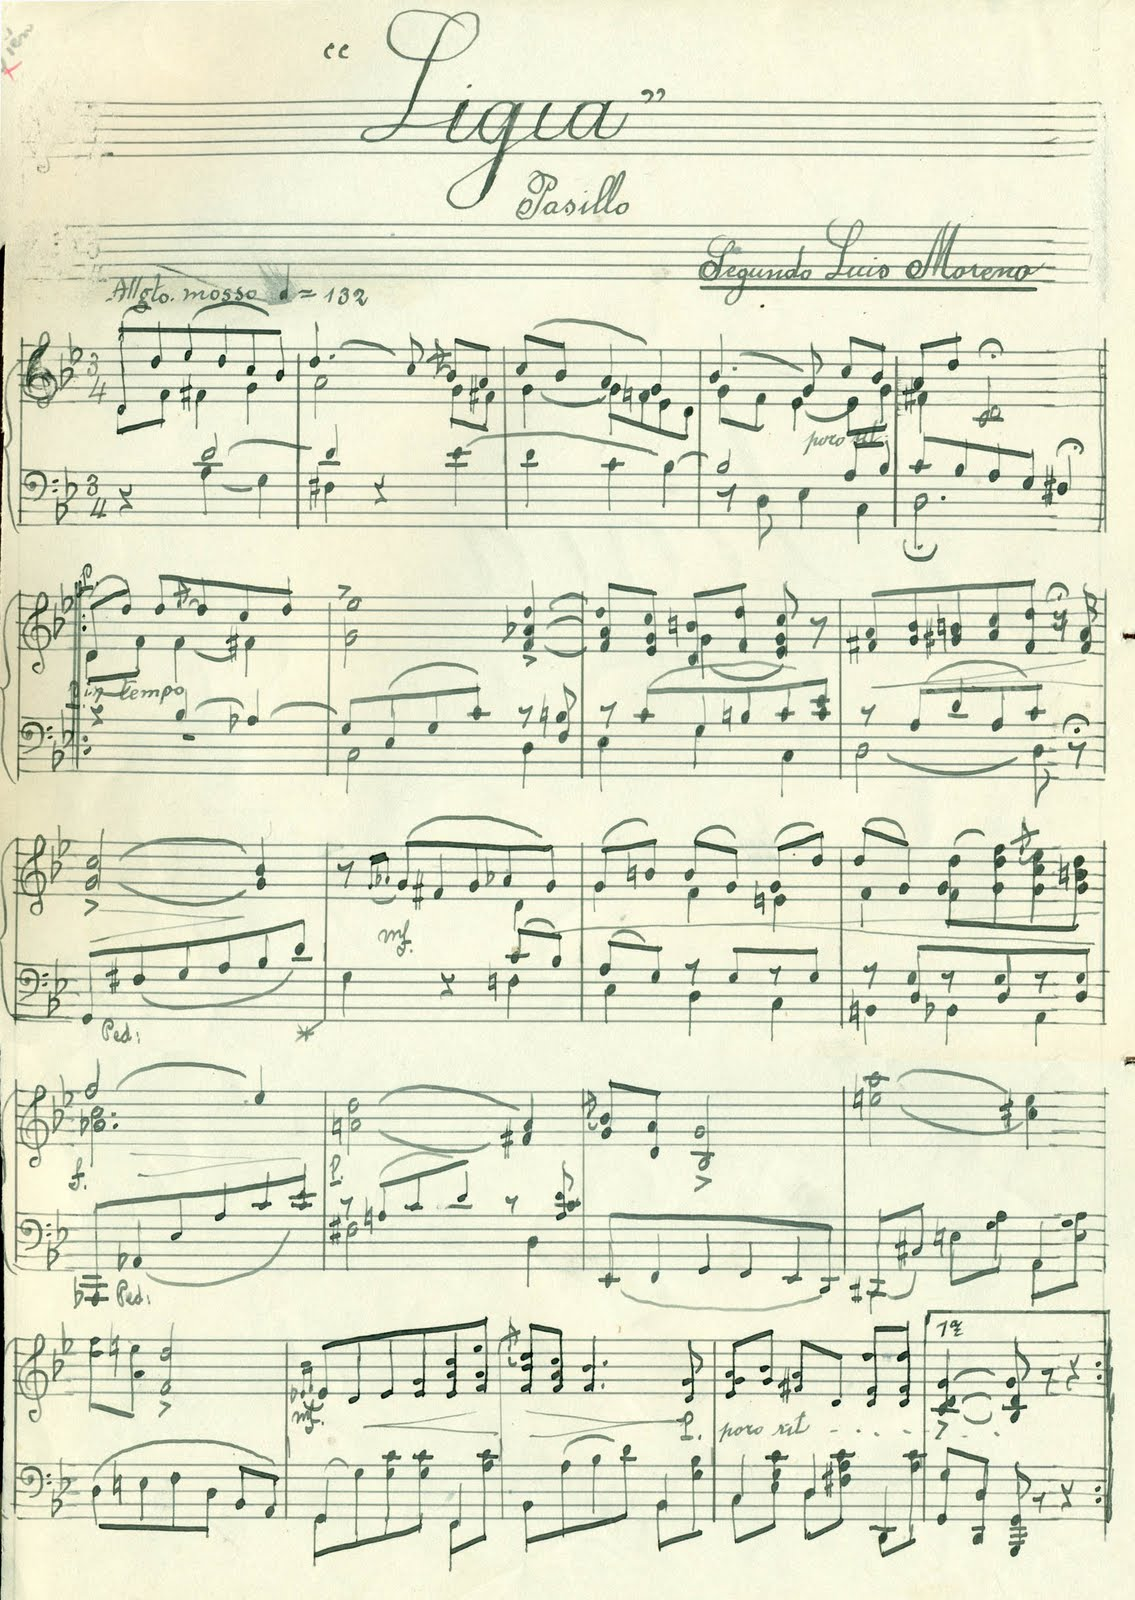 “Ligia”
Pasillo
Segundo Luis Moreno
Allgto. mosso = 132
3 4
poco rit.
3 4
p.
in tempo
mf.
Ped:
f. p.
Ped:
1ª
mf. p. poco rit - . . . - . . .